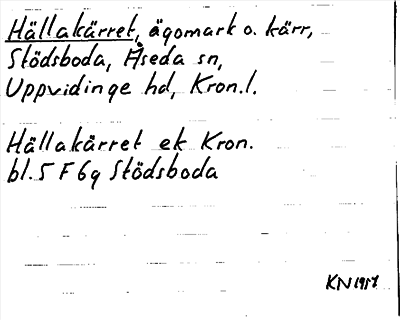 Hällakärret, ägomark o. kärr,
Stödsboda, Åseda sn,
Uppvidinge hd, Kron.l.
Hällakärret ek Kron.
bl. 5 F 6g Stödsboda
KN 1957